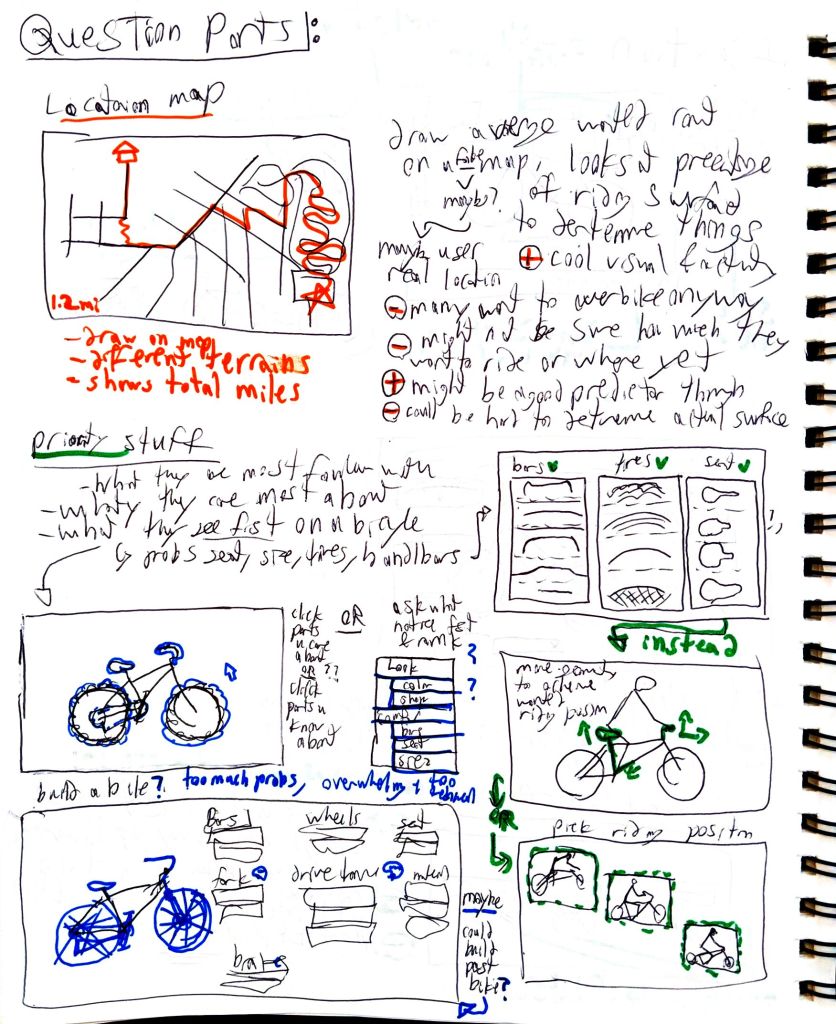 Question Parts:
Location map
1.2 mi
- draw on map
- different terrains
- shows total miles
draw average wanted rout
on a fake map, looks at precentage
maybe?
of riding surface
to determine things
maybe user
real location
+ cool visual & activity
- many want to overbike anyway
- might not be sure how much they
want to ride or where yet
+ might be a good predictor though
- could be hard to determine actual surface
priority stuff
- what they are most familiar with
- what they care most about
- what they see first on a bicycle
probs seat, size, tires, handlbars
bars
tires
seat
?
instead
click
parts
u care
about
OR ??
click
parts u
know
about
OR
ask what
notice fst
& rank
?
Look
color
?
shape
bars
seat
size?
move
to achieve
wanted
riding position
build a bike? too much probs, overwhelming + too
OR
pick riding position
Bars
wheels
seat
fork
drive train
brakes
maybe
could
build
past
bike?